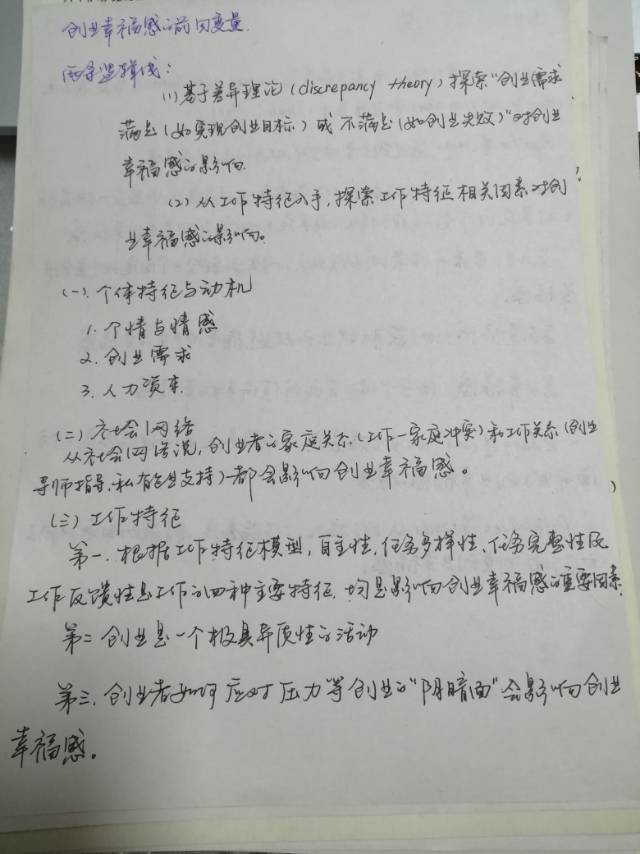 创业幸福感的前因变量
两条逻辑线：
(1)基于差异理论(discrepancy theory)探索“创业需求
满足(如实现创业目标)或不满足(如创业失败)”对创业
幸福感的影响
(2)从工作特征入手,探索工作特征相关因素对创
业幸福感的影响。
(一).个体特征与动机
1.个情与情感
2.创业需求
3.人力资本
(二)社会网络
从社会网络说,创业者的家庭关系(工作-家庭冲突)和工作关系(创业
导师指导、私有企业支持)都会影响创业幸福感。
(三)工作特征
第一.根据工作特征模型,自主性,任务多样性、任务完整性及
工作反馈性是工作的四种主要特征,均是影响创业幸福感的重要因素
第二 创业是一个极具异质性的活动
第三.创业者如何应对压力等创业的“阴暗面”会影响创业
幸福感。